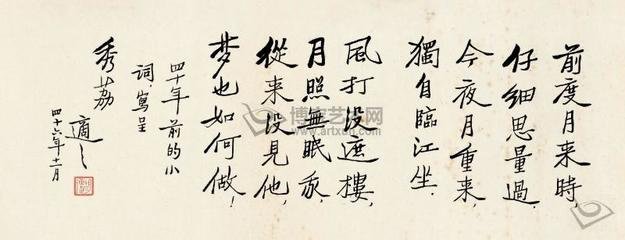 前度月来時，
仔细思量過．
今夜月重来，
獨自臨江坐．
風打没遮樓，
月照無眠我，
從来没見他，
梦也如何做！
四十年前的小
詞，寫呈
秀荔
適之
四十六年十一月
博宝艺术网
www.artxun.com